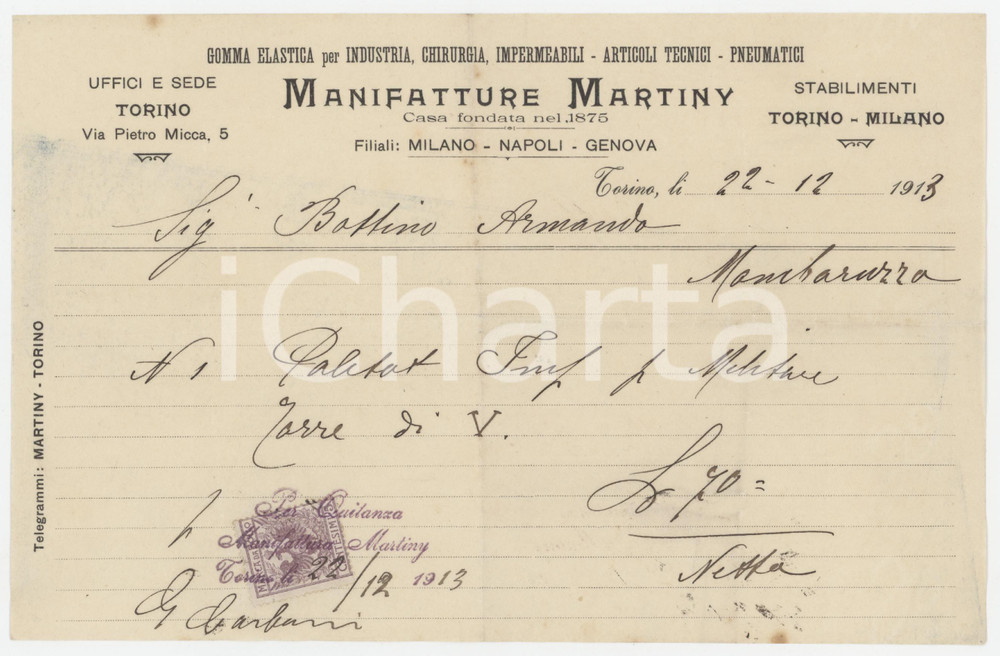 GOMMA ELASTICA per INDUSTRIA, CHIRURGIA, IMPERMEABILI - ARTICOLI TECNICI - PNEUMATICI
UFFICI E SEDE
TORINO
Via Pietro Micca, 5
MANIFATTURE MARTINY
Casa fondata nel 1875
Filiali: MILANO - NAPOLI - GENOVA
STABILIMENTI
TORINO - MILANO
Torino, li 22 - 12 1913
Sig^r Bottino Armando
Mombaruzzo
iCharta
N 1 Paletot Imp p Militare
Torre di V.
L 70 =
Netto
p
Per Quitanza
Manifattura Martiny
Torino li 22/12 1913
Telegrammi: MARTINY - TORINO